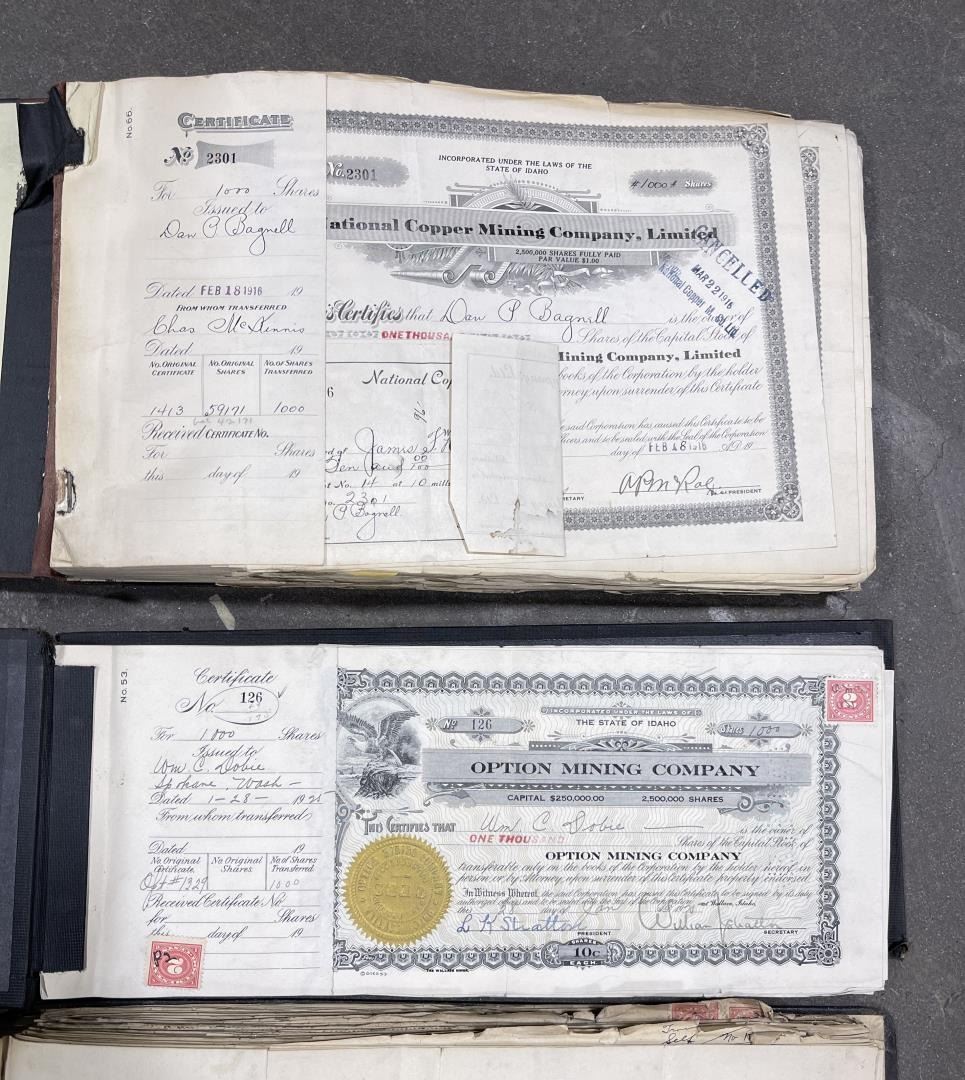 No. 66.
CERTIFICATE
No 2301
For 1000 Shares
Issued to
Dan P Bagnell
Dated FEB 18 1916 19
FROM WHOM TRANSFERRED
Chas McKinnis
Dated 19
NO. ORIGINAL CERTIFICATE NO. ORIGINAL SHARES NO. OF SHARES TRANSFERRED
1413 59171 1000
Received CERTIFICATE NO.
For Shares
this day of 19
INCORPORATED UNDER THE LAWS OF THE
STATE OF IDAHO
No. 2301
#1000# Shares
ational Copper Mining Company, Limited
2,500,000 SHARES FULLY PAID
PAR VALUE $1.00
CANCELLED
MAR 22 1916
National Copper M. Co. Ltd.
is Certifies that Dan P Bagnell is the owner of
ONE THOUSA Shares of the Capital Stock of
Mining Company, Limited
books of the Corporation by the holder
orney, upon surrender of this Certificate
said Corporation has caused this Certificate to be
ficers and to be sealed with the Seal of the Corporation
day of FEB 18 1916 A.D. 19
ETARY
PRESIDENT
National Cop
6
No. 14 at 10 mills
2301
P Bagnell
No. 53.
Certificate
No 126
For 1000 Shares
Issued to
Wm C. Dobie
Spokane, Wash -
Dated 1-28- 1925
From whom transferred
Dated 19
No. Original Certificate. No. Original Shares No. of Shares Transferred
Opt #1329 1000
Received Certificate No.
for Shares
this day of 19
2
No 126
INCORPORATED UNDER THE LAWS OF
THE STATE OF IDAHO
Shares 1000
2
OPTION MINING COMPANY
CAPITAL $250,000.00 2,500,000 SHARES
THIS CERTIFIES THAT Wm C Dobie is the owner of
ONE THOUSAND Shares of the Capital Stock of
OPTION MINING COMPANY
transferable only on the books of the Corporation by the holder hereof in
person, or by Attorney, upon surrender of this Certificate properly endorsed.
In Witness Whereof, the said Corporation has caused this Certificate to be signed by its duly
authorized officers and to be sealed with the Seal of the Corporation at Wallace, Idaho,
this day of Jan A.D. 19
L A Stratton
PRESIDENT
SECRETARY
SHARES
10c
EACH
THE WALLACE MINER.
Self No